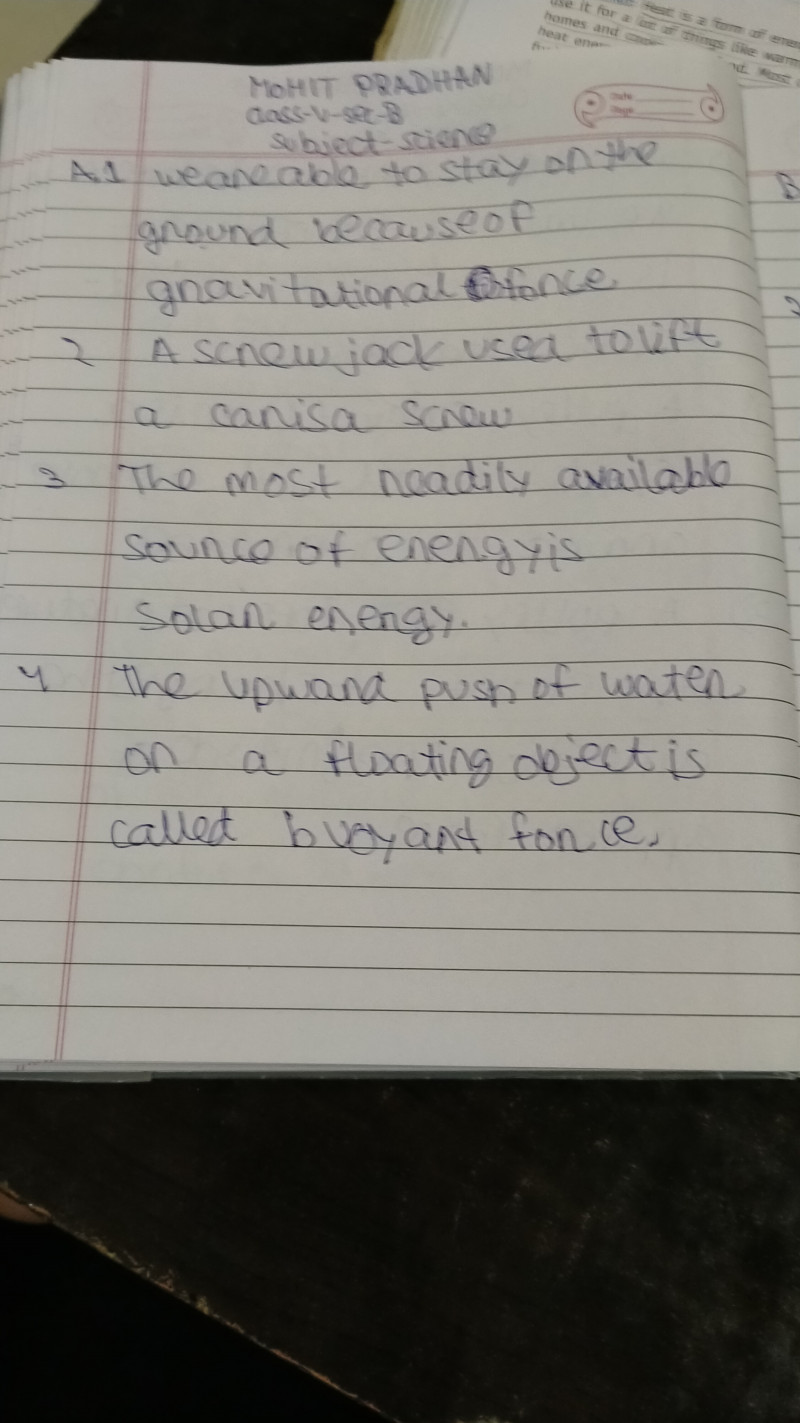 Heat is a form of ener
use it for a lot of things like warm
homes and
heat ener
nd. Most
MOHIT PRADHAN
class-V-sec-B
subject-science
Date
Page
A.1 we are able to stay on the
ground because of
gravitational force.
2 A screw jack used to lift
a car is a screw
3 The most readily available
source of energy is
solar energy.
4 The upward push of water
on a floating object is
called buoyant force.
B
2